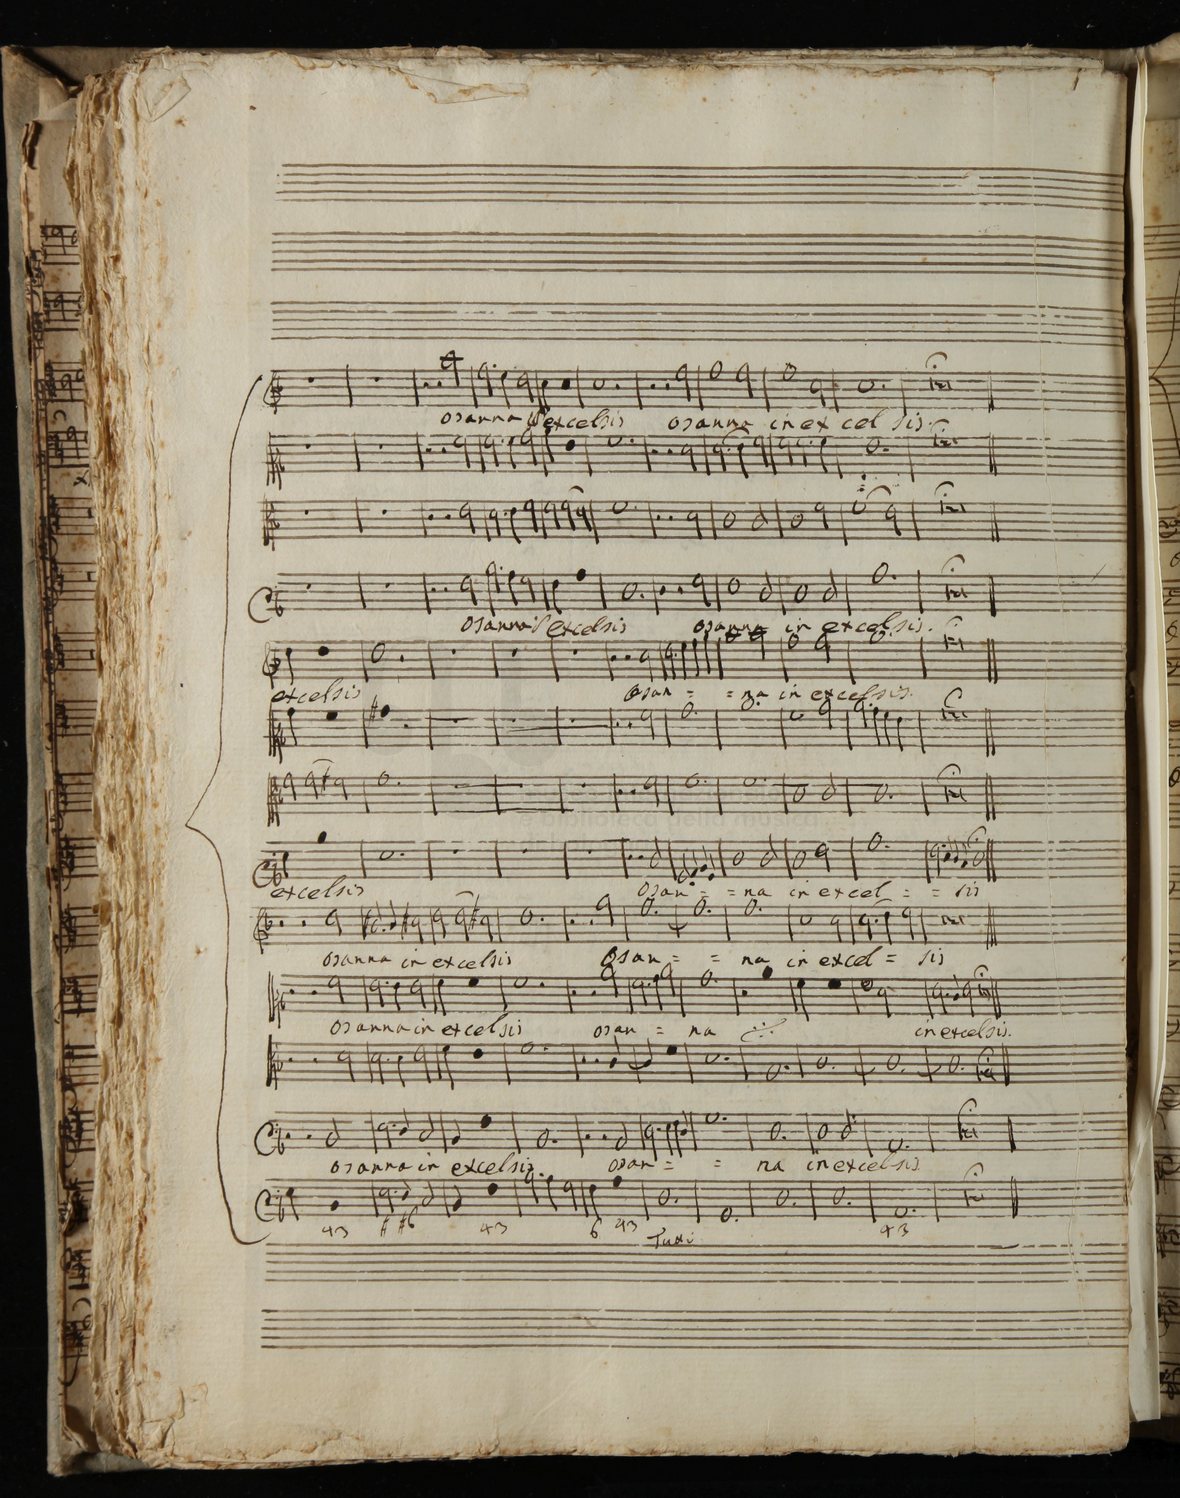 osanna excelsis osanna in excel sis
osanna excelsis osanna in excelsis.
excelsis osan = = na in excelsis.
e biblioteca della musica
excelsis osan = = na in excel = = sis
osanna in excelsis osan = = na in excel = sis
osanna in excelsis osan = na in excelsis.
osanna in excelsis. osan = = na in excelsis
43 # #6 43 6 43 Tutti 43